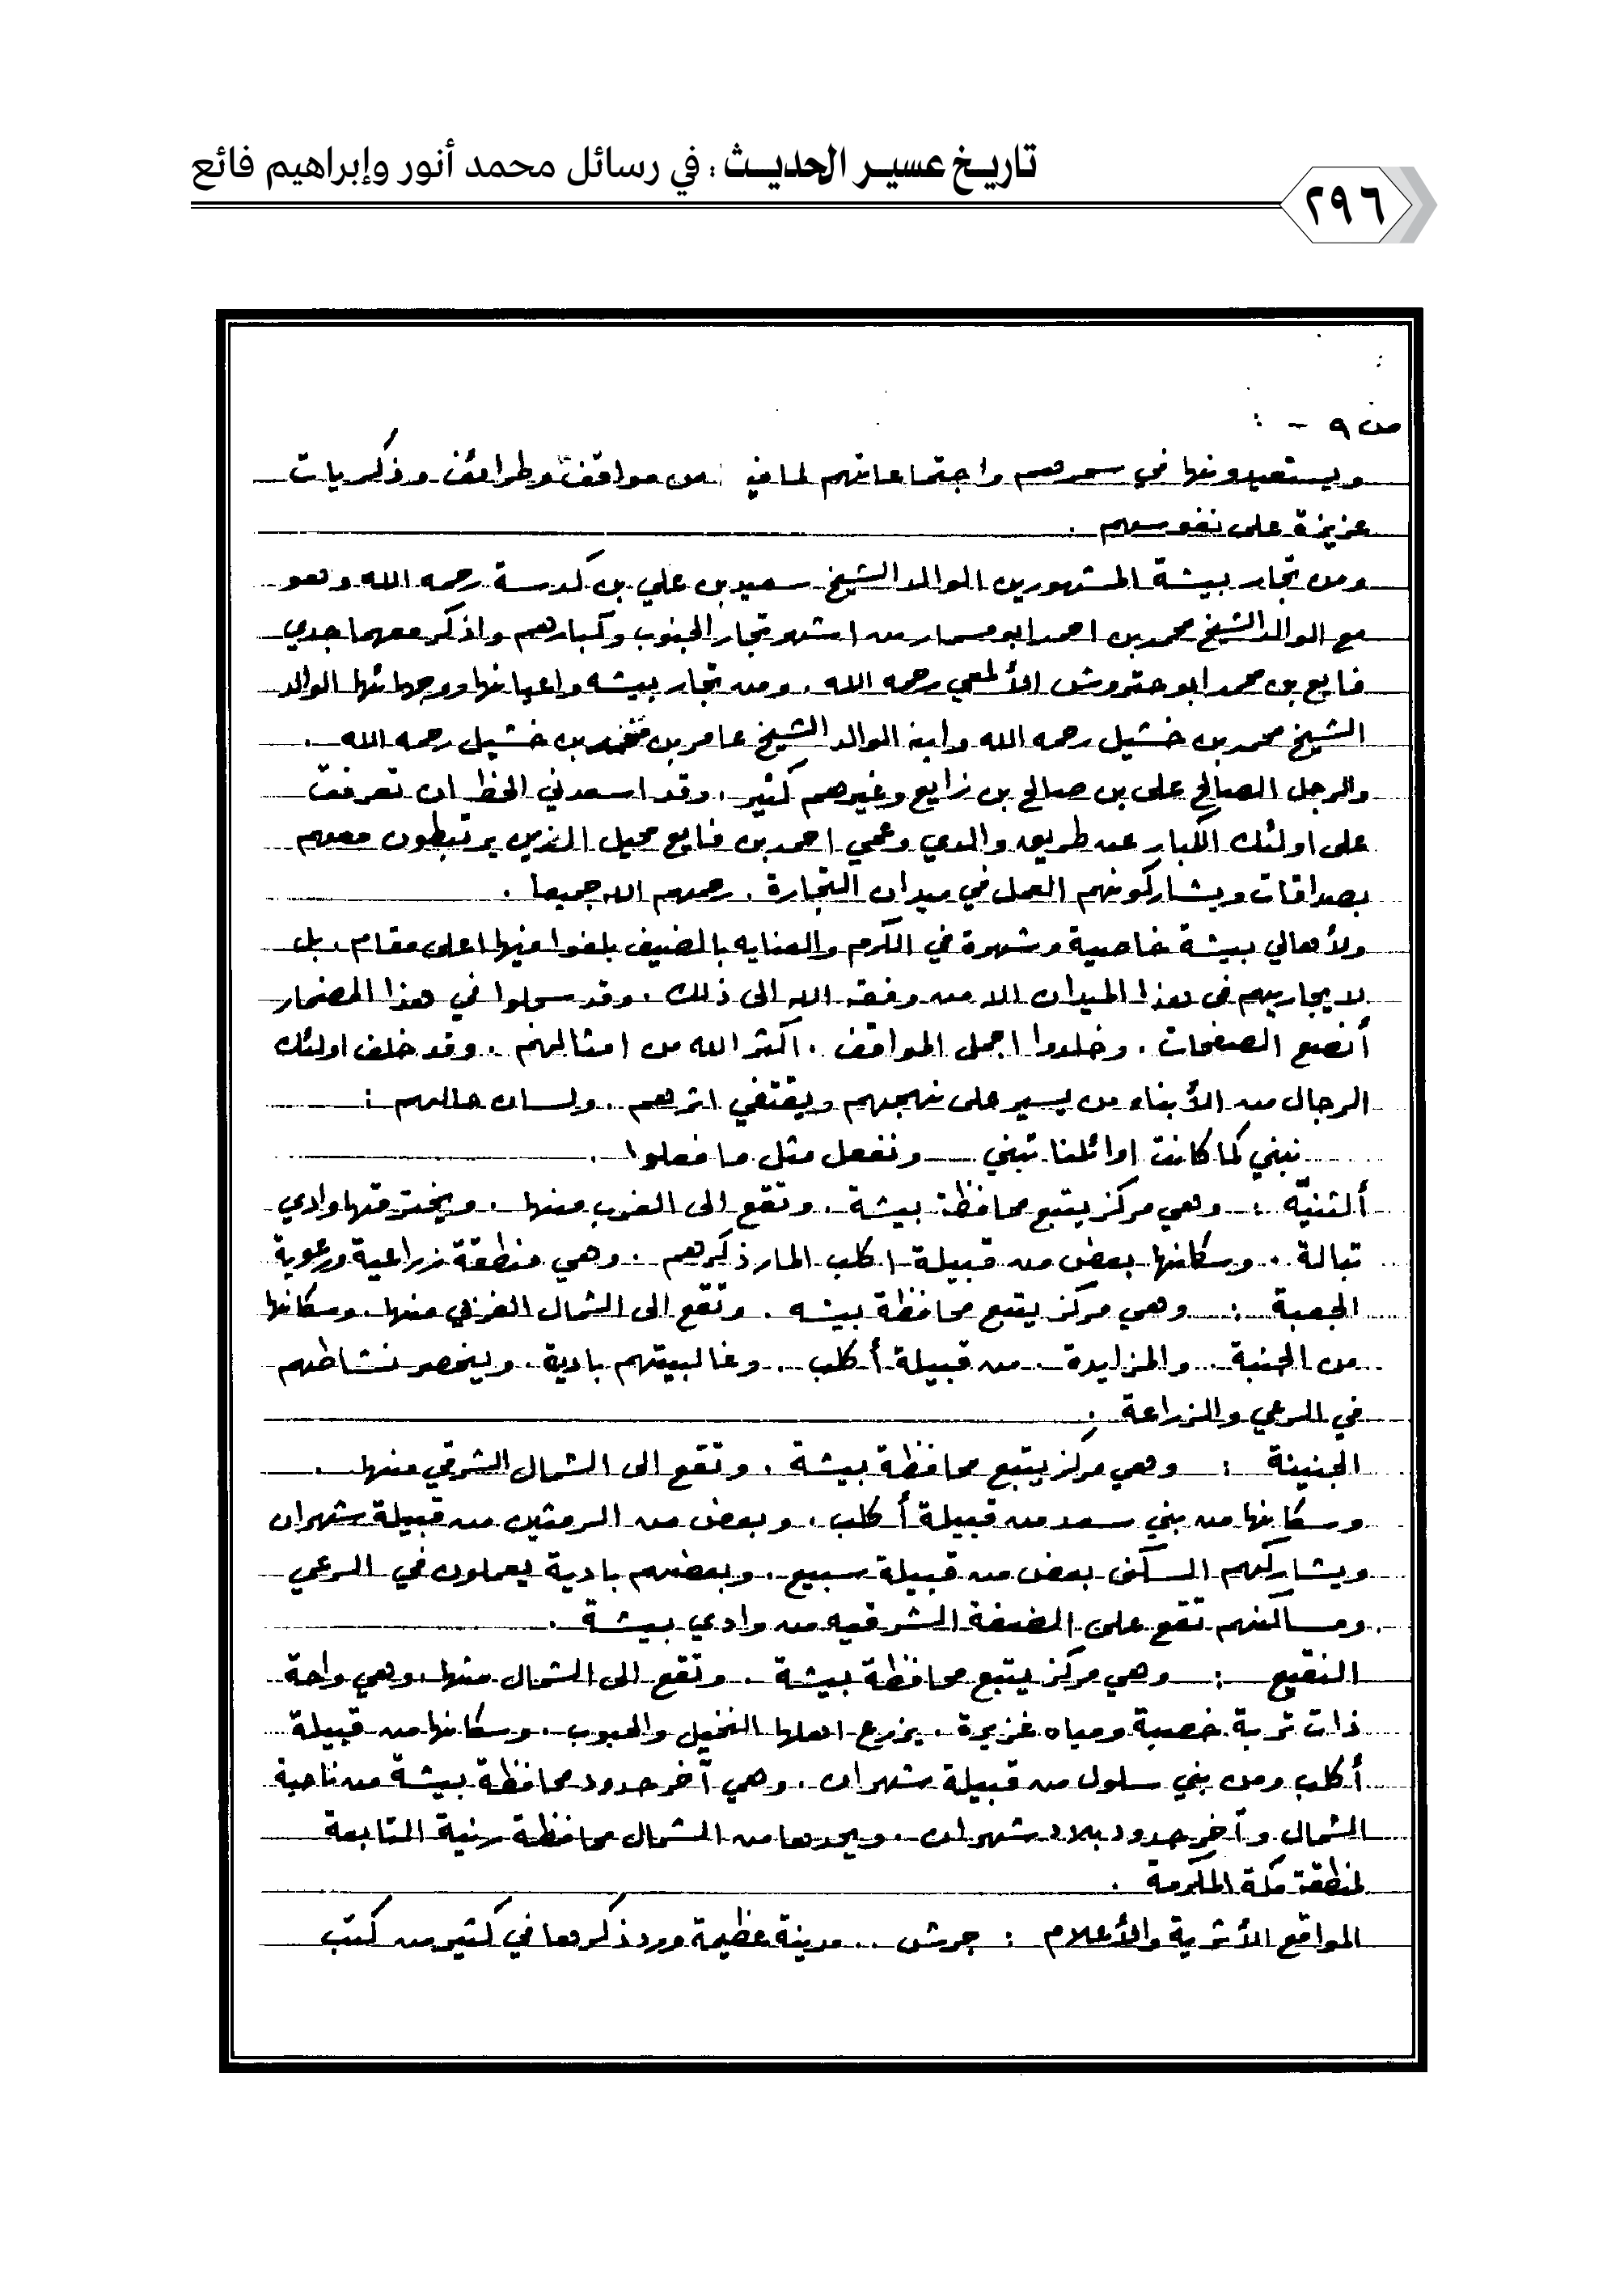 تاريخ عسير الحديث : في رسائل محمد أنور وإبراهيم فائع
٢٩٦
ص ٩ - :
ويستعيدونها في سمرهم واجتماعاتهم لما فيه من مواقف وطرائف وذكريات
عزيزة على نفوسهم .
ومن تجار بيشة المشهورين الوالد الشيخ سعيد بن علي بن كدسة رحمه الله وهو
مع الوالد الشيخ محمد بن احمد ابو مسمار من اشهر تجار الجنوب وكبارهم واذكر معهما جدي
فايع بن محمد ابو حتروش الألمعي رحمه الله . ومن تجار بيشه واعيانها ووجهائها الوالد
الشيخ محمد بن خشيل رحمه الله وابنه الوالد الشيخ عامر بن محمد بن خشيل رحمه الله .
والرجل الصالح علي بن صالح بن زايع وغيرهم كثير . وقد اسعدني الحظ ان تعرفت
على اولئك الكبار عن طريق والدي وعمي احمد بن فايع محيل الذين يرتبطون معهم
بصداقات ويشاركونهم العمل في ميدان التجارة . رحمهم الله جميعا .
ولأهالي بيشة خاصية وشهرة في الكرم والعنايه بالضيف بلغوا فيها اعلى مقام . بل
لا يجاريهم في هذا الميدان الا من وفقه الله الى ذلك . وقد سجلوا في هذا المضمار
أنصع الصفحات . وخلدوا اجمل المواقف . اكثر الله من امثالهم . وقد خلف اولئك
الرجال من الأبناء من يسير على نهجهم ويقتفي اثرهم . ولسان حالهم :
نبني كما كانت اوائلنا تبني ونفعل مثل ما فعلوا .
ألثنيّه : وهي مركز يتبع محافظة بيشة . وتقع الى الغرب منها . ويخترقها وادي
تبالة . وسكانها بعض من قبيلة اكلب المار ذكرهم . وهي منطقة زراعية ورعوية
الجعبة : وهي مركز يتبع محافظة بيشه . وتقع الى الشمال الغربي منها . وسكانها
من الجنبة . والمزايدة . من قبيلة أكلب . وغالبيتهم بادية . وينحصر نشاطهم
في الرعي والزراعة .
الجنينة : وهي مركز يتبع محافظة بيشة . وتقع الى الشمال الشرقي منها .
وسكانها من بني سعد من قبيلة أكلب . وبعض من الرمثين من قبيلة شهران
ويشاركهم السكنى بعض من قبيلة سبيع . وبعضهم بادية يعملون في الرعي
ومساكنهم تقع على الضفة الشرقيه من وادي بيشة .
النقيع : وهي مركز يتبع محافظة بيشة . وتقع الى الشمال منها . وهي واحة
ذات تربة خصبة ومياه غزيرة . يزرع اهلها النخيل والحبوب . وسكانها من قبيلة
أكلب ومن بني سلول من قبيلة شهران . وهي آخر حدود محافظة بيشة من ناحية
الشمال وآخر حدود بلاد شهران . ويحدها من الشمال محافظة رنية التابعة
لمنطقة مكة المكرمة .
المواقع الأثرية والأعلام : جرش .. مدينة عظيمة ورد ذكرها في كثير من كتب